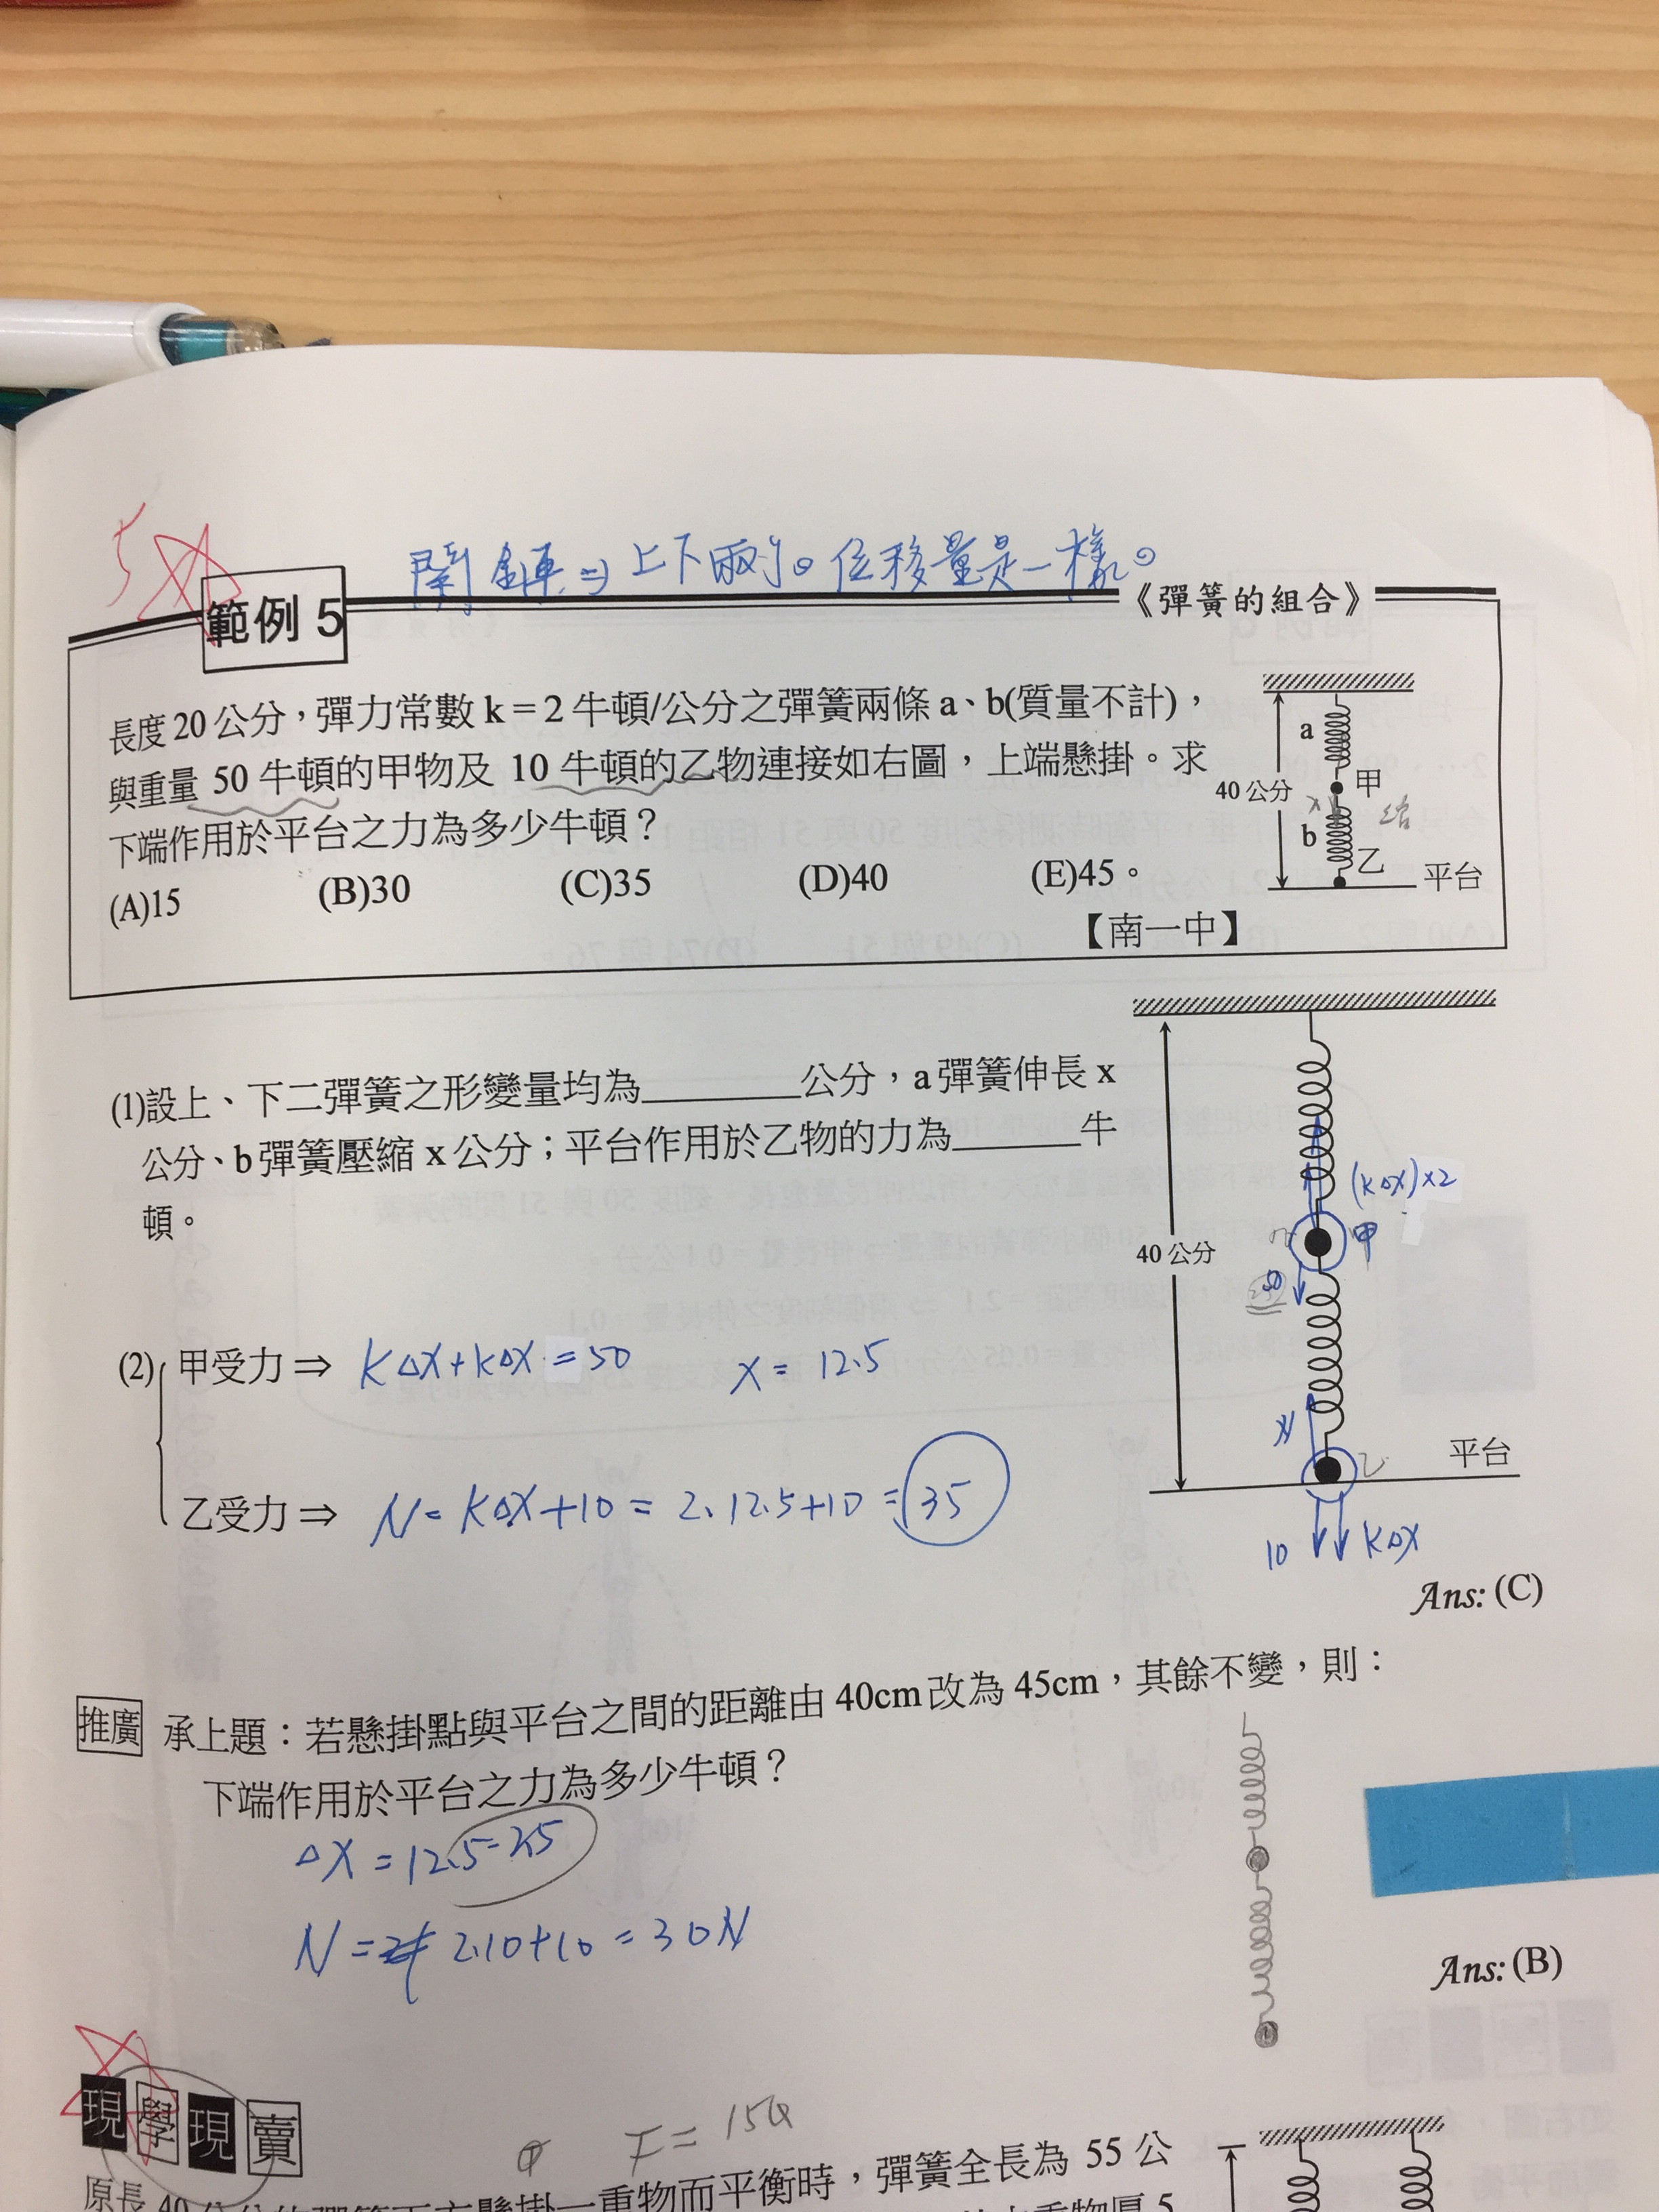 關鍵⇒上下兩. 位移量是一樣。
範例 5
《彈簧的組合》
長度 20 公分，彈力常數 k = 2 牛頓/公分之彈簧兩條 a、b(質量不計)，
與重量 50 牛頓的甲物及 10 牛頓的乙物連接如右圖，上端懸掛。求
下端作用於平台之力為多少牛頓？
(A)15 (B)30 (C)35 (D)40 (E)45。
【南一中】
a
40 公分
甲
縮
b
乙
平台
(1)設上、下二彈簧之形變量均為________公分，a 彈簧伸長 x
公分、b 彈簧壓縮 x 公分；平台作用於乙物的力為______牛
頓。
(kΔx)×2
甲
40 公分
50
(2) 甲受力⇒ kΔx+kΔx=50 x=12.5
N
乙
平台
乙受力⇒ N=kΔx+10=2.12.5+10=35
10
kΔx
Ans: (C)
推廣 承上題：若懸掛點與平台之間的距離由 40cm 改為 45cm，其餘不變，則：
下端作用於平台之力為多少牛頓？
Δx=12.5-2.5
N= 2.10+10=30N
Ans: (B)
現學現賣
F=
原長 40 公分的彈簧下方懸掛一重物而平衡時，彈簧全長為 55 公